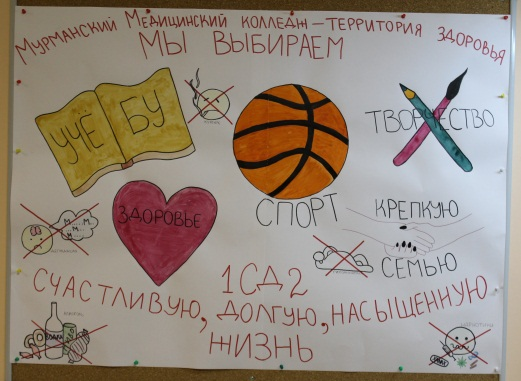 Мурманский Медицинский колледж – территория здоровья
Мы выбираем
УЧЕБУ
ТВОРЧЕСТВО
ЗДОРОВЬЕ
СПОРТ
КРЕПКУЮ
СЕМЬЮ
1СД2
СЧАСТЛИВУЮ, ДОЛГУЮ, НАСЫЩЕННУЮ
ЖИЗНЬ